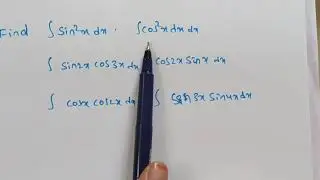 Find ∫ Sin²x dx · ∫ Cos³x dx dx
∫ Sin2x cos3x dx Cos2x Sinx dx
∫ Cosx cos2x dx ∫ 3x Sin4x dx